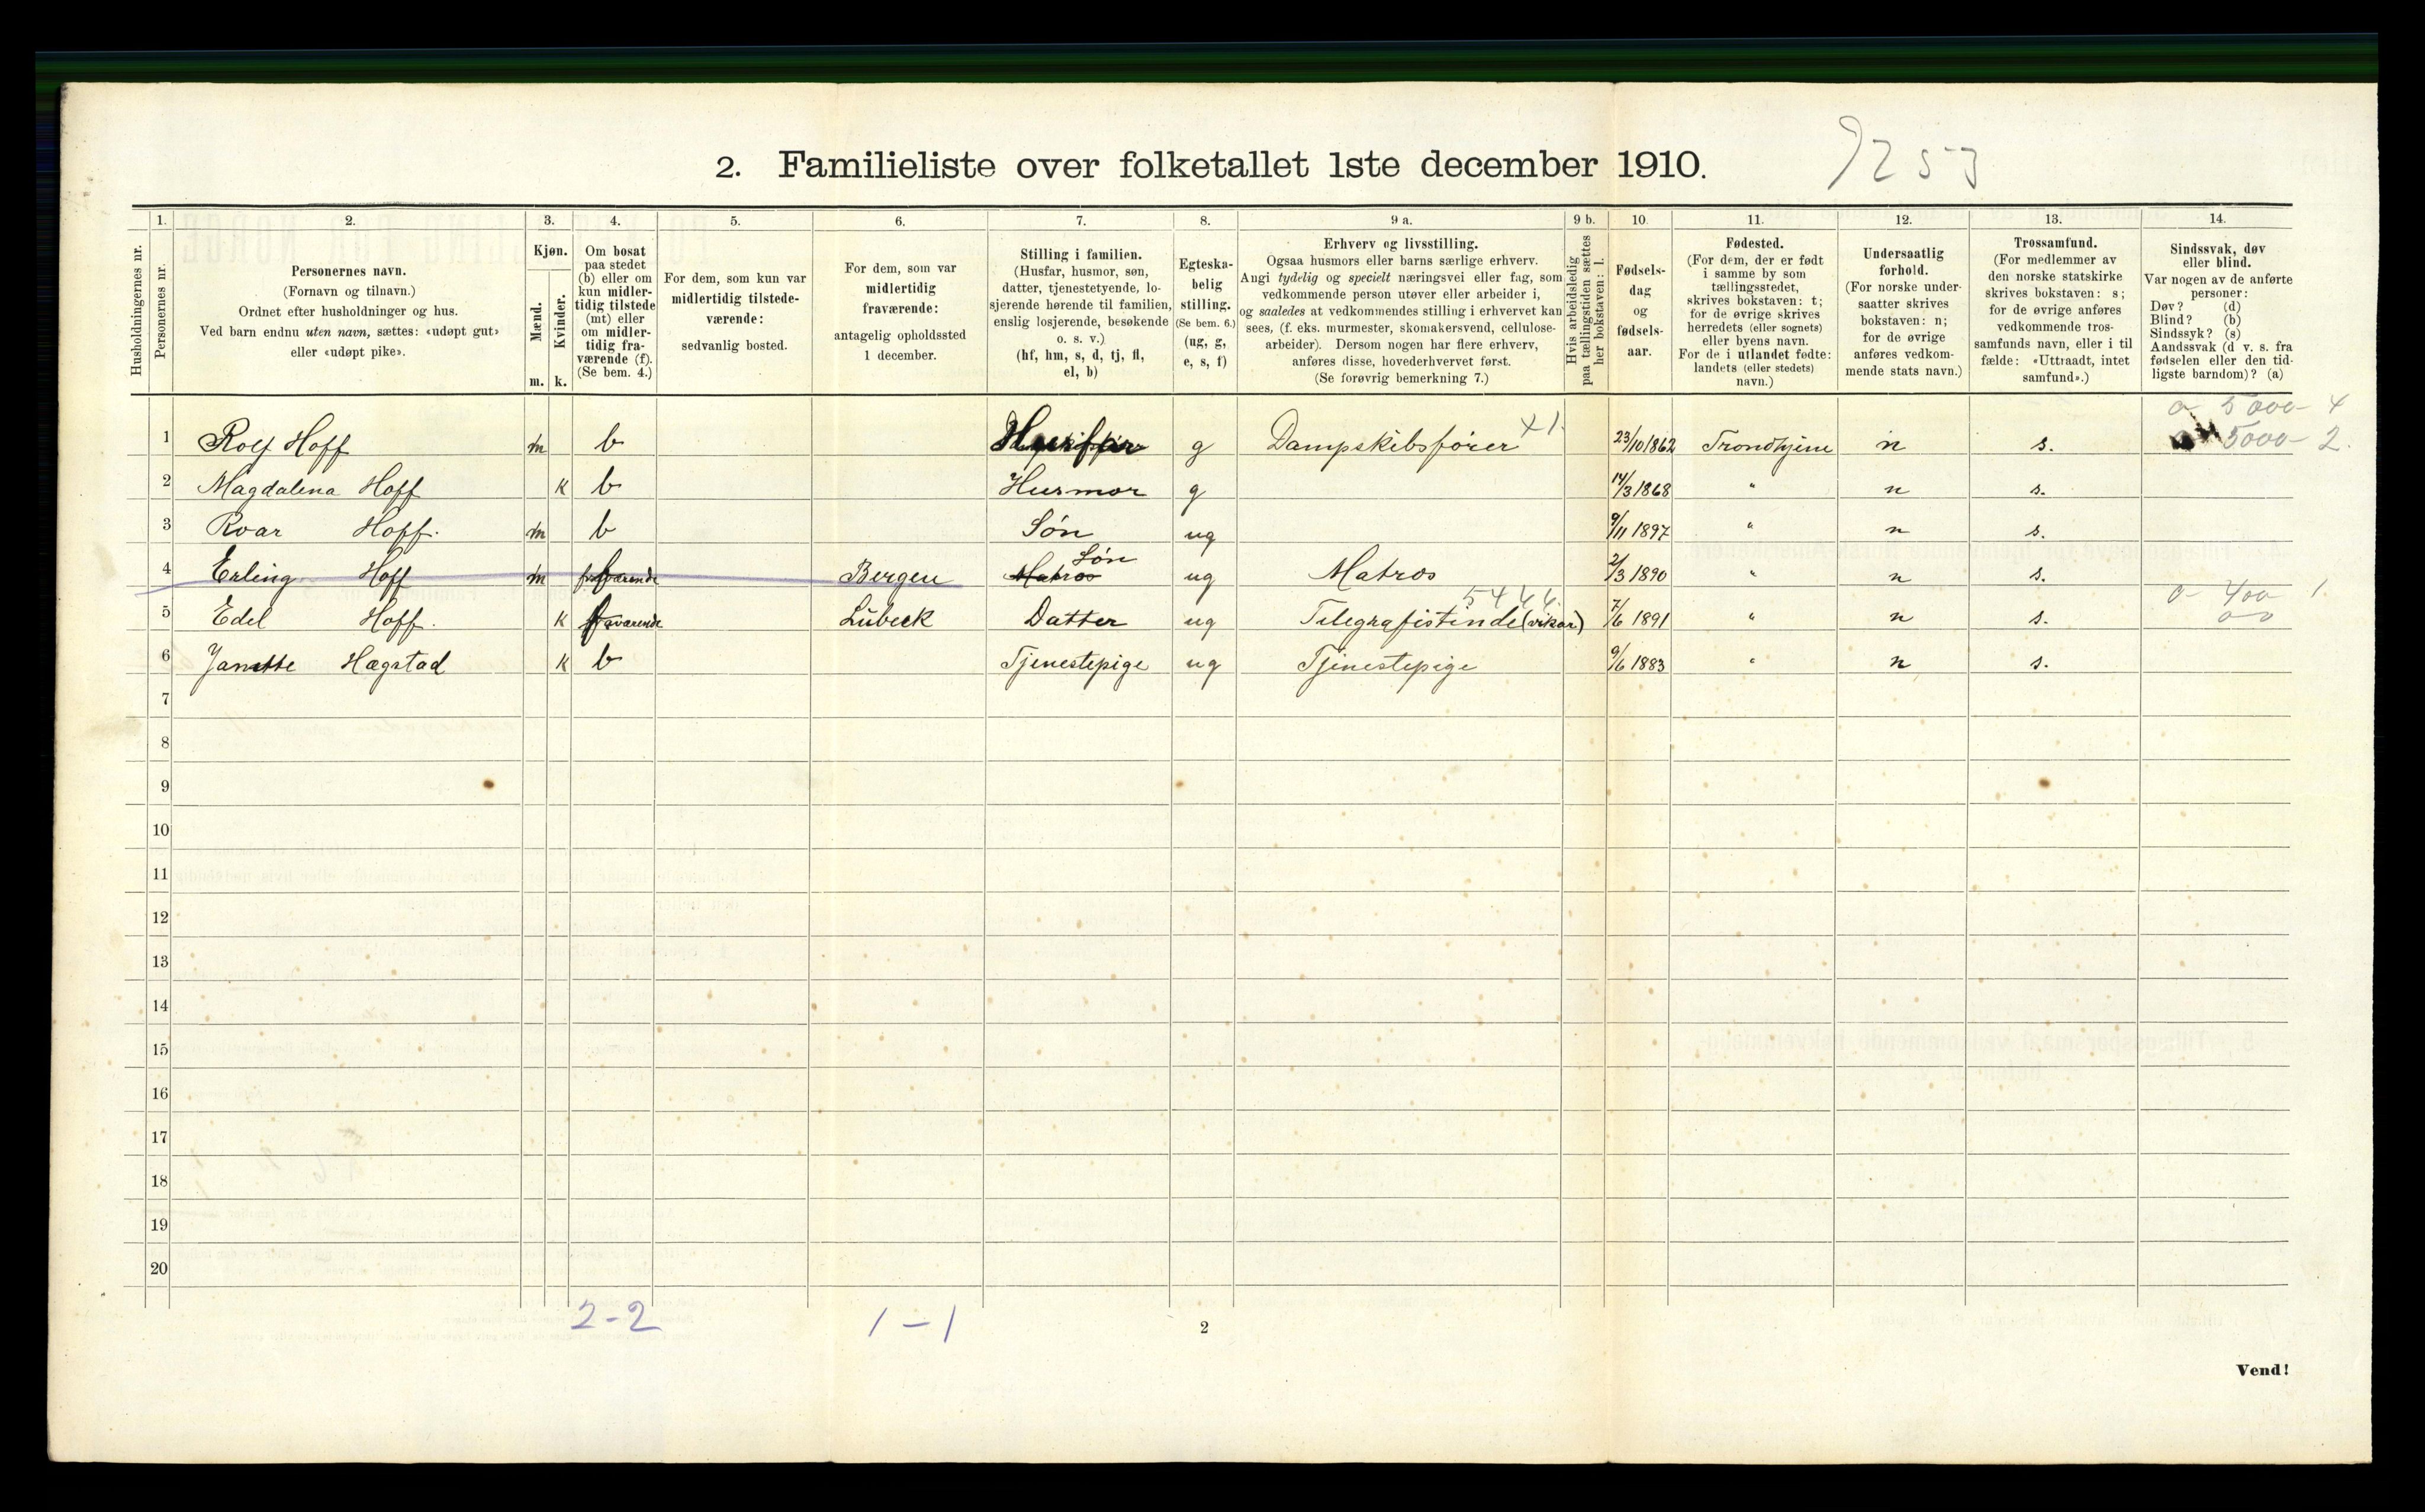 2. Familieliste over folketallet 1ste december 1910.
9253
Husholdningernes nr.
1.
Personernes nr.
2.
Personernes navn.
(Fornavn og tilnavn.)
Ordnet efter husholdninger og hus.
Ved barn endnu uten navn, sættes: «udøpt gut»
eller «udøpt pike».
3.
Kjøn.
Mænd.
m.
Kvinder.
k.
4.
Om bosat
paa stedet
(b) eller om
kun midler-
tidig tilstede
(mt) eller
om midler-
tidig fra-
værende (f).
(Se bem. 4.)
5.
For dem, som kun var
midlertidig tilstede-
værende:
sedvanlig bosted.
6.
For dem, som var
midlertidig
fraværende:
antagelig opholdssted
1 december.
7.
Stilling i familien.
(Husfar, husmor, søn,
datter, tjenestetyende, lo-
sjerende hørende til familien,
enslig losjerende, besøkende
o. s. v.)
(hf, hm, s, d, tj, fl,
el, b)
8.
Egteska-
belig
stilling.
(Se bem. 6.)
(ug, g,
e, s, f)
9 a.
Erhverv og livsstilling.
Ogsaa husmors eller barns særlige erhverv.
Angi tydelig og specielt næringsvei eller fag, som
vedkommende person utøver eller arbeider i,
og saaledes at vedkommendes stilling i erhvervet kan
sees, (f. eks. murmester, skomakersvend, cellulose-
arbeider). Dersom nogen har flere erhverv,
anføres disse, hovederhvervet først.
(Se forøvrig bemerkning 7.)
9 b.
Hvis arbeidsledig
paa tællingstiden sættes
her bokstaven: l.
10.
Fødsels-
dag
og
fødsels-
aar.
11.
Fødested.
(For dem, der er født
i samme by som
tællingsstedet,
skrives bokstaven: t;
for de øvrige skrives
herredets (eller sognets)
eller byens navn.
For de i utlandet fødte:
landets (eller stedets)
navn.)
12.
Undersaatlig
forhold.
(For norske under-
saatter skrives
bokstaven: n;
for de øvrige
anføres vedkom-
mende stats navn.)
13.
Trossamfund.
(For medlemmer av
den norske statskirke
skrives bokstaven: s;
for de øvrige anføres
vedkommende tros-
samfunds navn, eller i til
fælde: «Uttraadt, intet
samfund».)
14.
Sindssvak, døv
eller blind.
Var nogen av de anførte
personer:
Døv? (d)
Blind? (b)
Sindssyk? (s)
Aandssvak (d v. s. fra
fødselen eller den tid-
ligste barndom)? (a)
5000- 4
1 Rolf Hoff m b Husfar g Dampskibsfører x1. 23/10 1862 Trondhjem n s. 5000- 2.
2 Magdalena Hoff k b Husmor g 14/3 1868 " n s.
3 Roar Hoff. m b Søn ug 9/11 1897 " n s.
4 Erling Hoff m fraværende Bergen Matros Søn ug Matros 2/3 1890 " n s.
5444 0- 400 1
5 Edel Hoff. k fraværende Lübeck Datter ug Telegrafistinde (vikar) 7/6 1891 " n s. 00
6 Janette Hægstad k b Tjenestepige ug Tjenestepige 9/6 1883 " n s.
7
8
9
10
11
12
13
14
15
16
17
18
19
20
2-2 1-1
2
Vend!